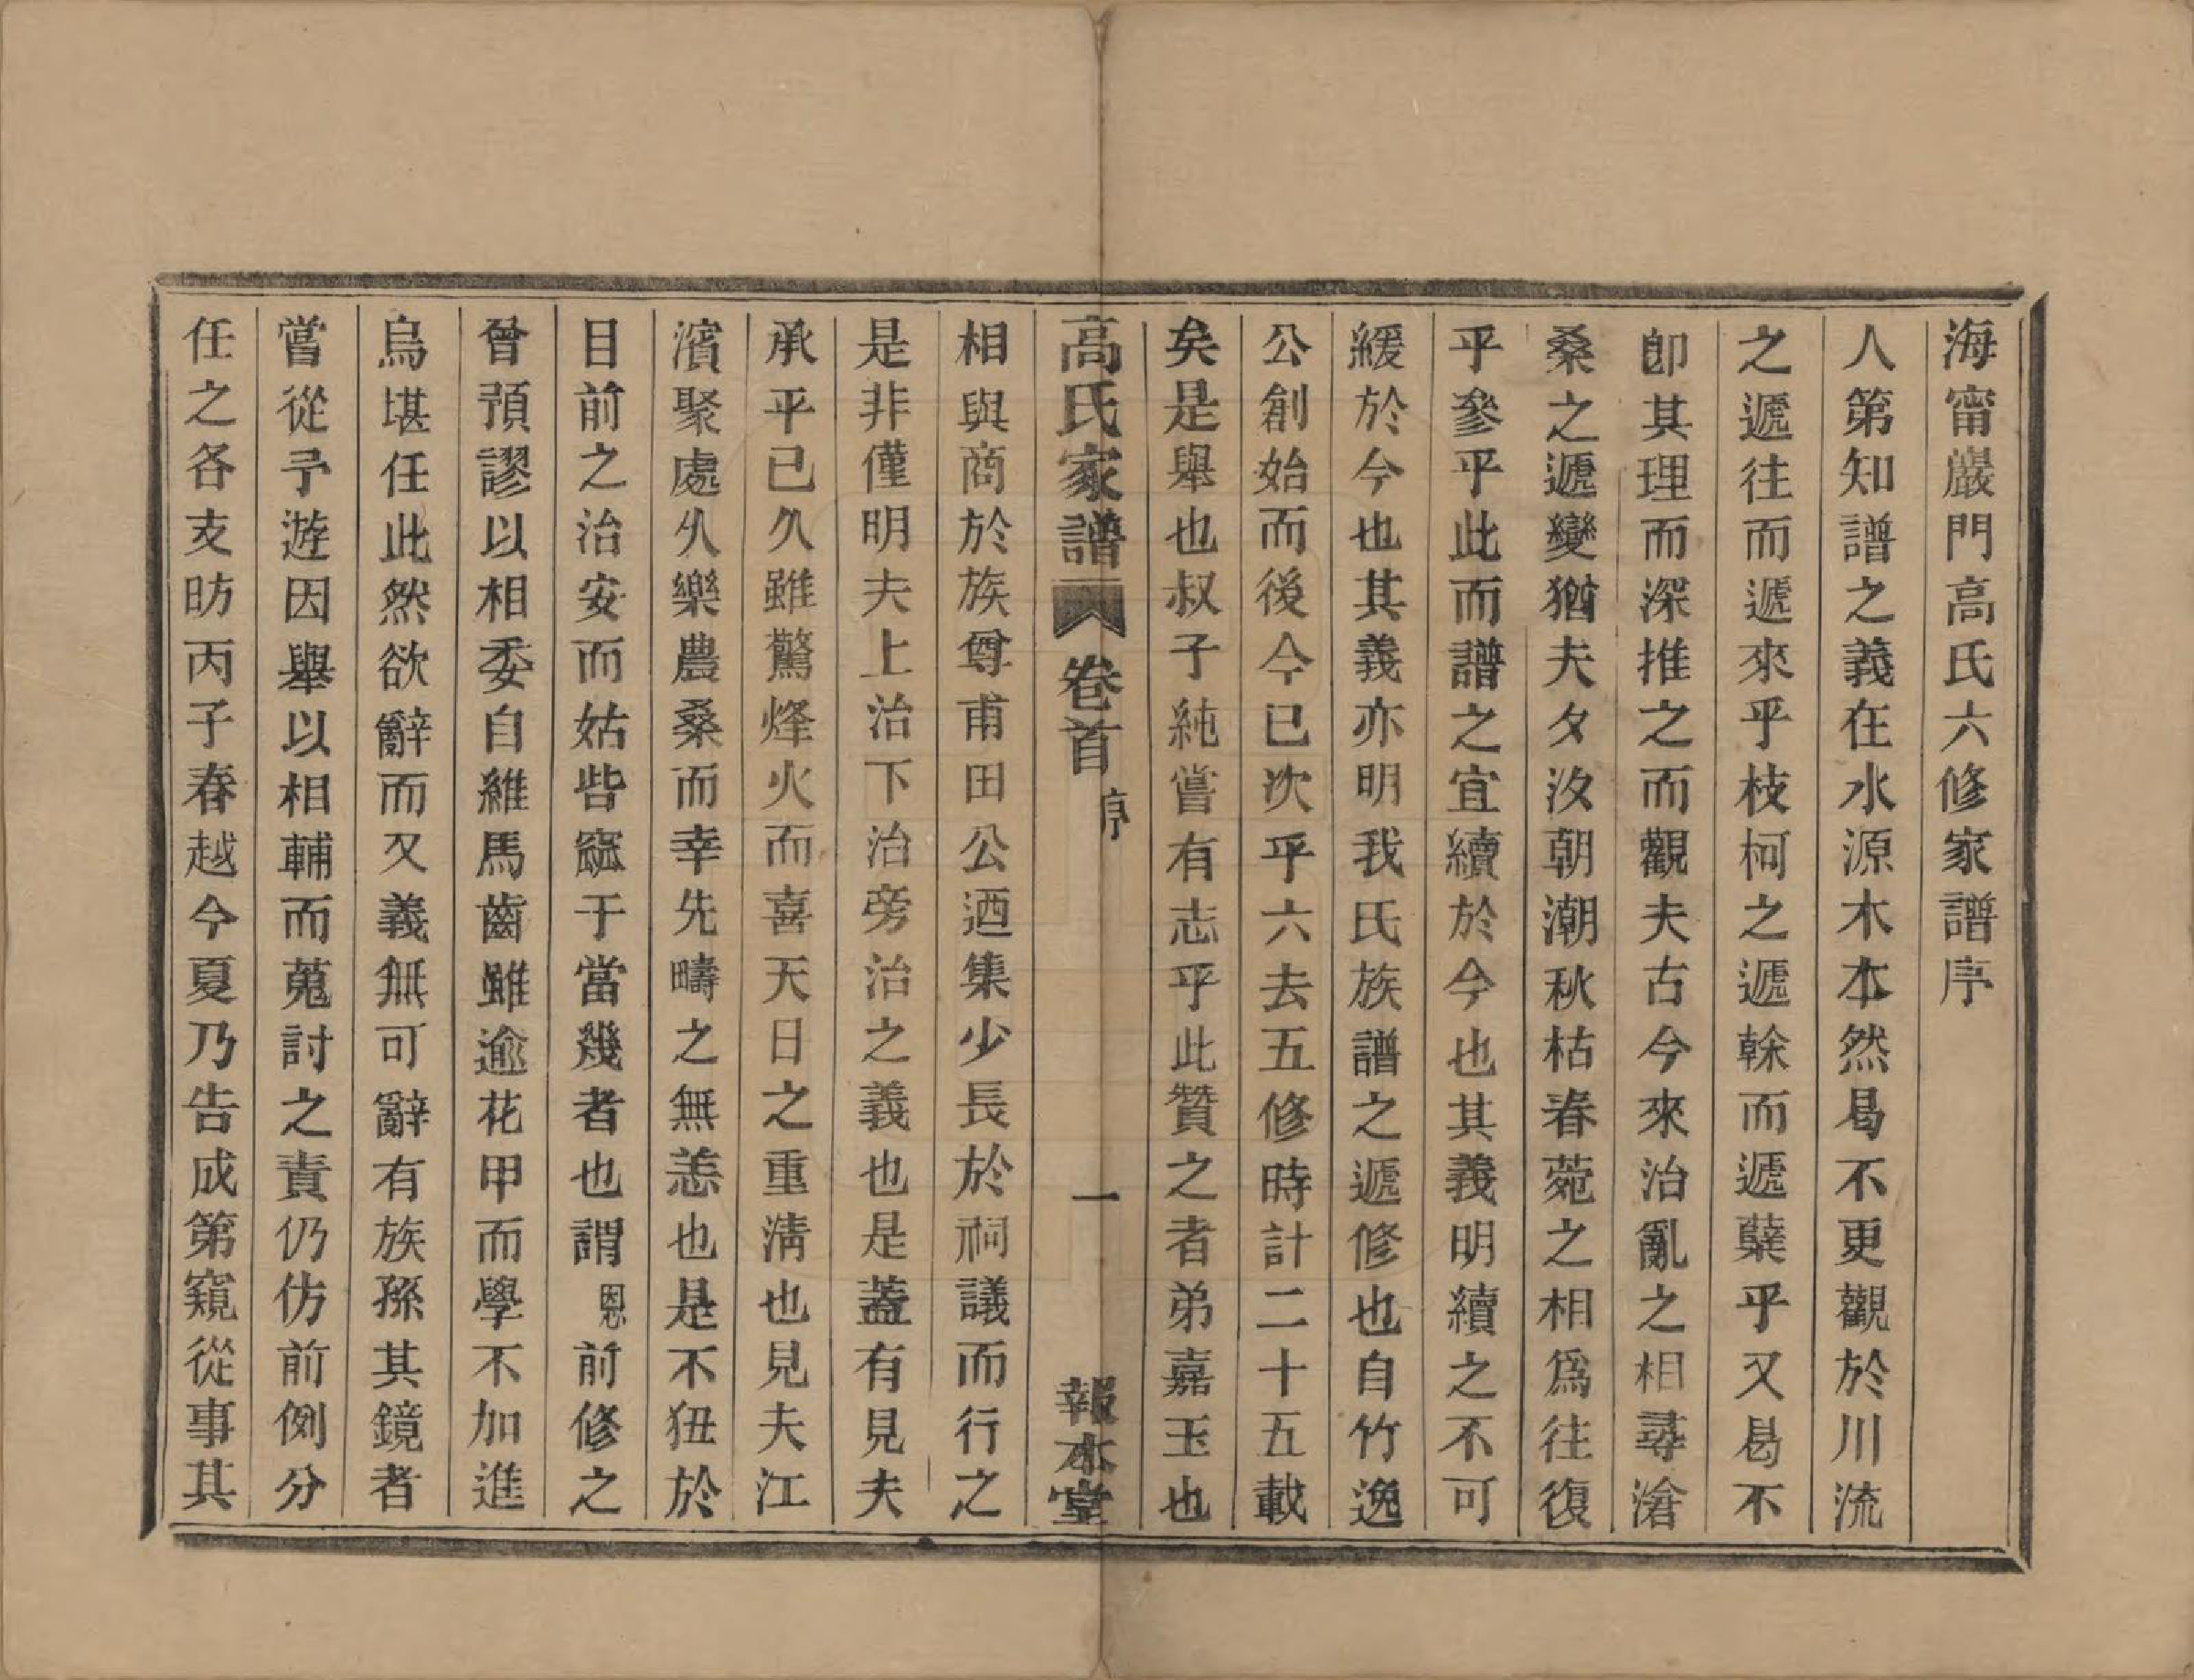 海甯巖門高氏六修家譜序
人第知譜之義在水源木本然曷不更觀於川流
之遞往而遞來乎枝柯之遞榦而遞櫱乎又曷不
卽其理而深推之而觀夫古今來治亂之相尋滄
桑之遞變猶夫夕汐朝潮秋枯春菀之相爲往復
乎參乎此而譜之宜續於今也其義明續之不可
緩於今也其義亦明我氏族譜之遞修也自竹逸
公創始而後今已次乎六去五修時計二十五載
矣是舉也叔子純嘗有志乎此贊之者弟嘉玉也
高氏家譜 卷首 序 一 報本堂
相與商於族尊甫田公迺集少長於祠議而行之
是非僅明夫上治下治旁治之義也是葢有見夫
承平已久雖驚烽火而喜天日之重淸也見夫江
濱聚處久樂農桑而幸先疇之無恙也是不狃於
目前之治安而姑呰窳于當幾者也謂恩前修之
曾預謬以相委自維馬齒雖逾花甲而學不加進
烏堪任此然欲辭而又義無可辭有族孫其鏡者
嘗從予遊因舉以相輔而蒐討之責仍仿前例分
任之各支昉丙子春越今夏乃告成第窺從事其